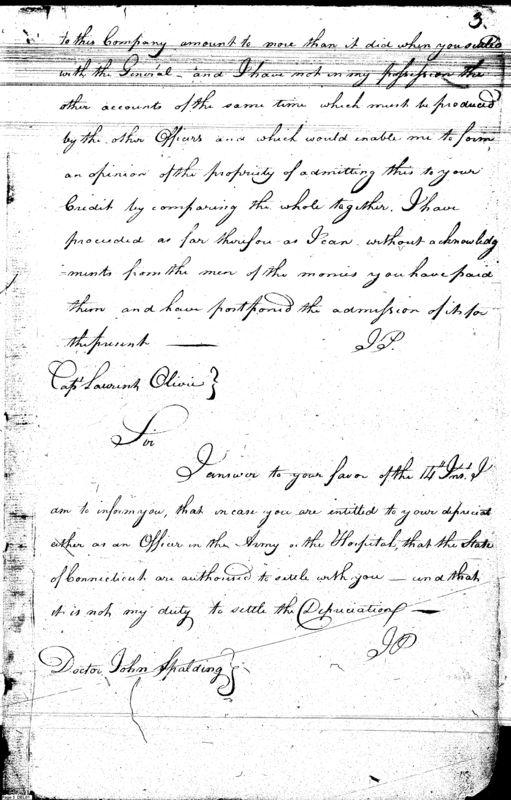 3.
to this Company amount to more than it did when you settled
with the General - and I have not in my possession the
other accounts of the same time which must be produced
by the other Officers and which would enable me to form
an opinion of the propriety of admitting this to your
Credit by comparing the whole together. I have
proceeded as far therefore as I can without acknowledg
-ments from the men of the monies you have paid
them and have postponed the admission of it for
the present —
J P.
Capt Laurent Olivie }
Sir
I answer to your favor of the 14th Inst. I
am to inform you, that in case you are entitled to your depreciat
either as an Officer in the Army or the Hospital, that the State
of Connecticut are authorised to settle with you — and that
it is not my duty to settle the Depreciation —
J P
Doctor John Spalding }